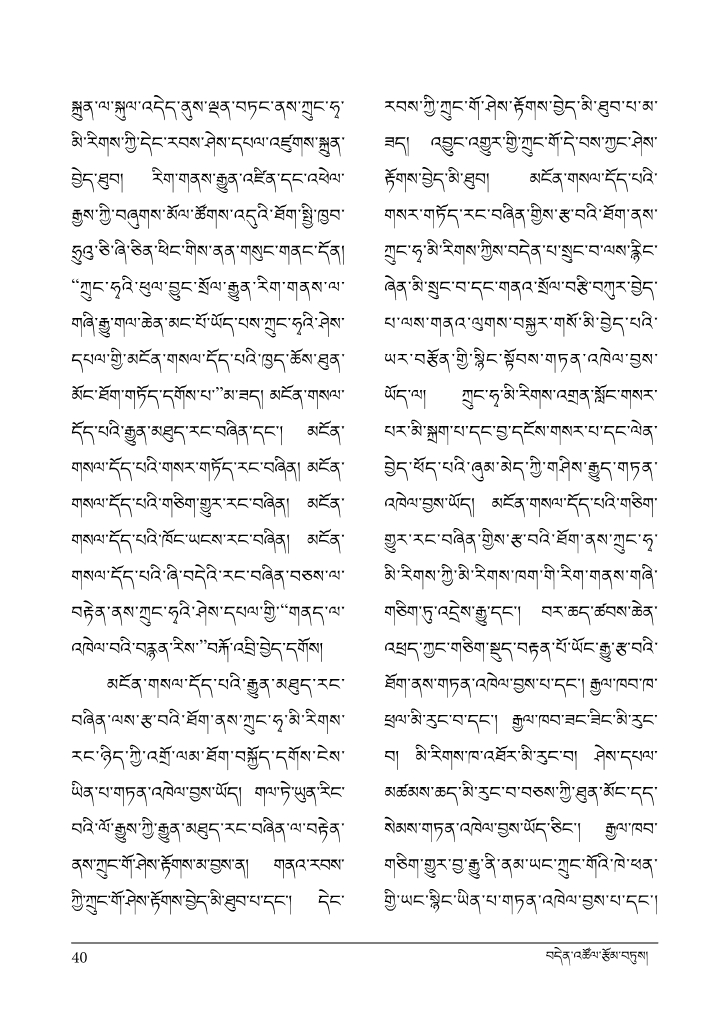 སྐྲུན་ལ་སྐུལ་འདེད་ནུས་ལྡན་བཏང་ནས་ཀྲུང་ཧྭ་
མི་རིགས་ཀྱི་དེང་རབས་ཤེས་དཔལ་འཛུགས་སྐྲུན་
བྱེད་ཐུབ། རིག་གནས་རྒྱུན་འཛིན་དང་འཕེལ་
རྒྱས་ཀྱི་བཞུགས་མོལ་ཚོགས་འདུའི་ཐོག་སྤྱི་ཁྱབ་
ཧྲུའུ་ཅི་ཞི་ཅིན་ཕིང་གིས་ནན་གསུང་གནང་དོན།
“ཀྲུང་ཧྭའི་ཕུལ་བྱུང་སྲོལ་རྒྱུན་རིག་གནས་ལ་
གཞི་རྒྱུ་གལ་ཆེན་མང་པོ་ཡོད་པས་ཀྲུང་ཧྭའི་ཤེས་
དཔལ་གྱི་མངོན་གསལ་དོད་པའི་ཁྱད་ཆོས་ཐུན་
མོང་ཐོག་གཏོད་དགོས་པ་”མ་ཟད། མངོན་གསལ་
དོད་པའི་རྒྱུན་མཐུད་རང་བཞིན་དང་། མངོན་
གསལ་དོད་པའི་གསར་གཏོད་རང་བཞིན། མངོན་
གསལ་དོད་པའི་གཅིག་གྱུར་རང་བཞིན། མངོན་
གསལ་དོད་པའི་ཁོང་ཡངས་རང་བཞིན། མངོན་
གསལ་དོད་པའི་ཞི་བདེའི་རང་བཞིན་བཅས་ལ་
བརྟེན་ནས་ཀྲུང་ཧྭའི་ཤེས་དཔལ་གྱི་“གནད་ལ་
འཁེལ་བའི་བརྙན་རིས་”བརྐོ་འབྲི་བྱེད་དགོས།
མངོན་གསལ་དོད་པའི་རྒྱུན་མཐུད་རང་
བཞིན་ལས་རྩ་བའི་ཐོག་ནས་ཀྲུང་ཧྭ་མི་རིགས་
རང་ཉིད་ཀྱི་འགྲོ་ལམ་ཐོག་བསྐྱོད་དགོས་ངེས་
ཡིན་པ་གཏན་འཁེལ་བྱས་ཡོད། གལ་ཏེ་ཡུན་རིང་
བའི་ལོ་རྒྱུས་ཀྱི་རྒྱུན་མཐུད་རང་བཞིན་ལ་བརྟེན་
ནས་ཀྲུང་གོ་ཤེས་རྟོགས་མ་བྱས་ན། གནའ་རབས་
ཀྱི་ཀྲུང་གོ་ཤེས་རྟོགས་བྱེད་མི་ཐུབ་པ་དང་། དེང་
རབས་ཀྱི་ཀྲུང་གོ་ཤེས་རྟོགས་བྱེད་མི་ཐུབ་པ་མ་
ཟད། འབྱུང་འགྱུར་གྱི་ཀྲུང་གོ་དེ་བས་ཀྱང་ཤེས་
རྟོགས་བྱེད་མི་ཐུབ། མངོན་གསལ་དོད་པའི་
གསར་གཏོད་རང་བཞིན་གྱིས་རྩ་བའི་ཐོག་ནས་
ཀྲུང་ཧྭ་མི་རིགས་ཀྱིས་བདེན་པ་སྲུང་བ་ལས་རྙིང་
ཞེན་མི་སྲུང་བ་དང་གནའ་སྲོལ་བརྩི་བཀུར་བྱེད་
པ་ལས་གནའ་ལུགས་བསྐྱར་གསོ་མི་བྱེད་པའི་
ཡར་བརྩོན་གྱི་སྙིང་སྟོབས་གཏན་འཁེལ་བྱས་
ཡོད་ལ། ཀྲུང་ཧྭ་མི་རིགས་འགྲན་སློང་གསར་
པར་མི་སྐྲག་པ་དང་བྱ་དངོས་གསར་པ་དང་ལེན་
བྱེད་ཕོད་པའི་ཞུམ་མེད་ཀྱི་གཤིས་རྒྱུད་གཏན་
འཁེལ་བྱས་ཡོད། མངོན་གསལ་དོད་པའི་གཅིག་
གྱུར་རང་བཞིན་གྱིས་རྩ་བའི་ཐོག་ནས་ཀྲུང་ཧྭ་
མི་རིགས་ཀྱི་མི་རིགས་ཁག་གི་རིག་གནས་གཞི་
གཅིག་ཏུ་འདྲེས་རྒྱུ་དང་། བར་ཆད་ཚབས་ཆེན་
འཕྲད་ཀྱང་གཅིག་སྡུད་བརྟན་པོ་ཡོང་རྒྱུ་རྩ་བའི་
ཐོག་ནས་གཏན་འཁེལ་བྱས་པ་དང་། རྒྱལ་ཁབ་ཁ་
ཕྲལ་མི་རུང་བ་དང་། རྒྱལ་ཁབ་ཟང་ཟིང་མི་རུང་
བ། མི་རིགས་ཁ་འཐོར་མི་རུང་བ། ཤེས་དཔལ་
མཚམས་ཆད་མི་རུང་བ་བཅས་ཀྱི་ཐུན་མོང་དད་
སེམས་གཏན་འཁེལ་བྱས་ཡོད་ཅིང་། རྒྱལ་ཁབ་
གཅིག་གྱུར་བྱ་རྒྱུ་ནི་ནམ་ཡང་ཀྲུང་གོའི་ཁེ་ཕན་
གྱི་ཡང་སྙིང་ཡིན་པ་གཏན་འཁེལ་བྱས་པ་དང་།
40
བདེན་འཚོལ་རྩོམ་བཏུས།